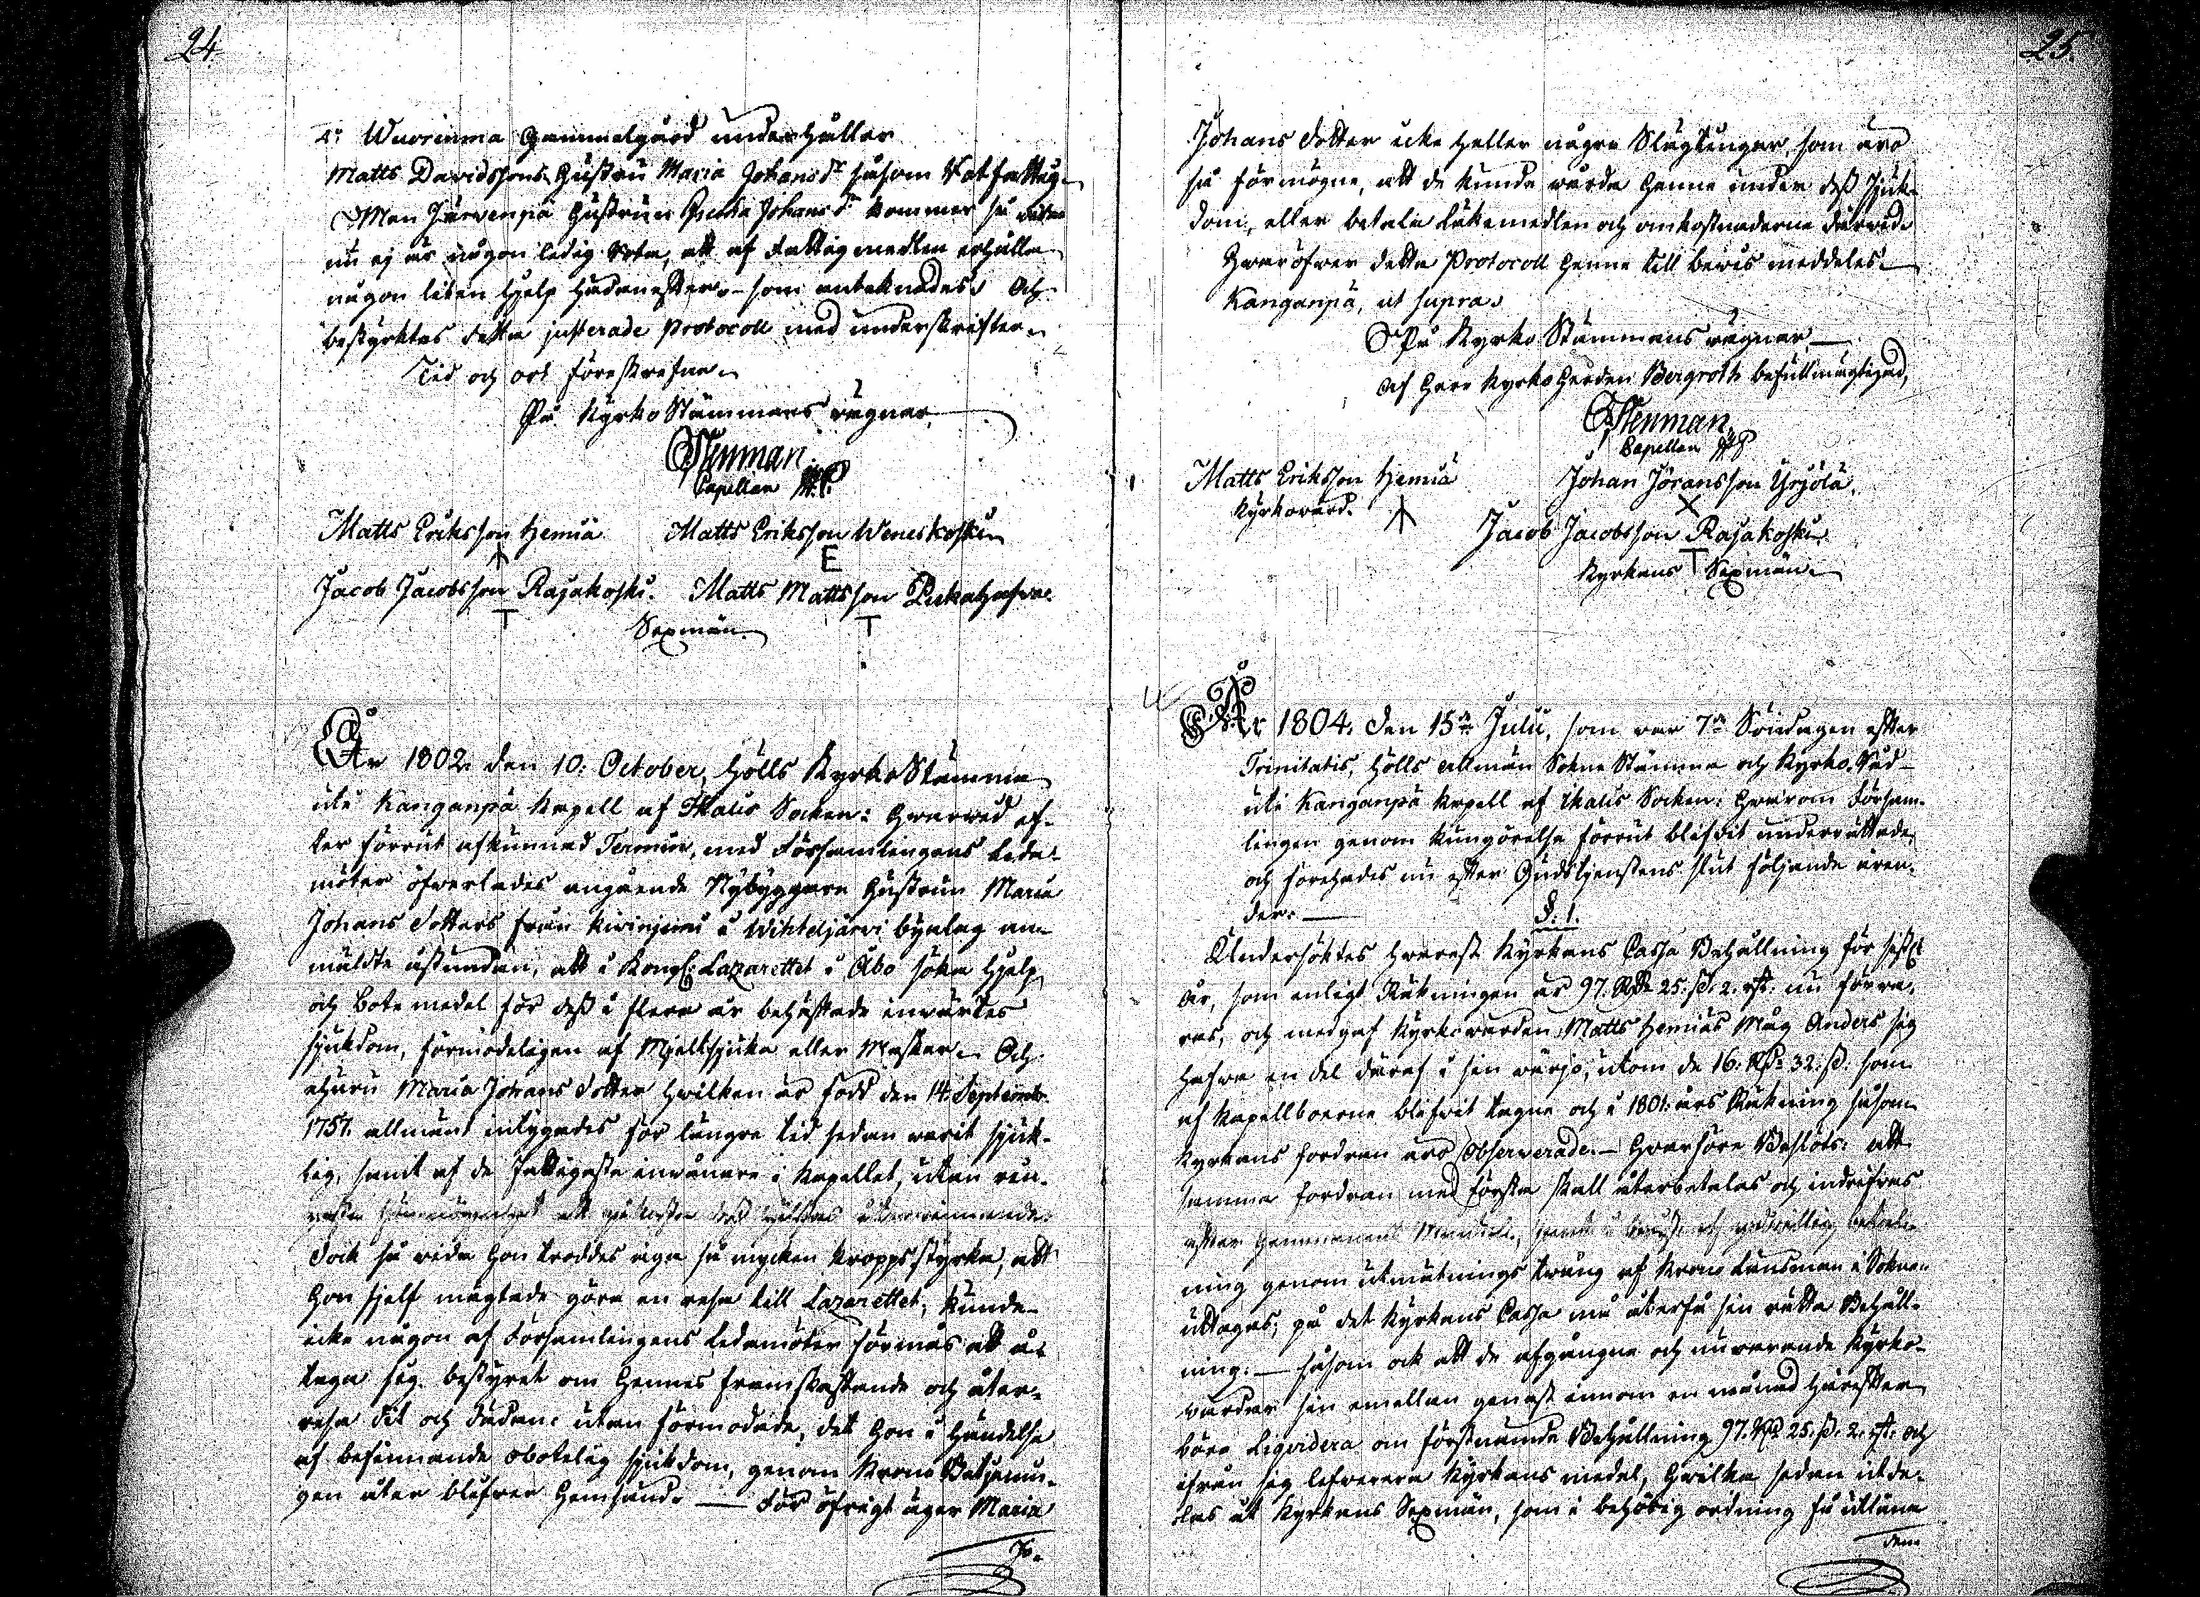 24.
4:o Wuorinma Gammelgård underhåller
Matts Davidssons Hustru Maria Johansdr såsom Rotfattig.
Men Järwenpä Hustrun Johansdr kommer så
nu ej är någon ledig Rota, att af Fattigmedlen erhålla
någon liten hjelp hädanefter. som anteknades. Och
bestyrktes detta justerade Protocoll med underskrifter.
Tid och ort föreskrefne.
På KyrkoStämmans wägnar
Stenman.
Capellan
Matts Eriksson Hemiä Matts Eriksson Weneskoski
E
Jacob Jacobsson Rajakoski. Matts Mattsson
T T
Sexmän.
År 1802. den 10: October, hölls KyrkoStämma
uti Kanganpä Kapell af Ikalis Socken: Hwarwid ef-
ter förrut afkunnad Termin, med Församlingens Leda-
möter öfwerlades angående Nybyggare Hustrun Maria
Johans Dotters från Kivinjemi i Wihteljärvi byalag an-
mäldte åstundan, att i Kongl: Lazarettet i Åbo söka hjelp
och botemedel för dess i flera år behäftade inwärtes
sjukdom, förmodeligen af Mjeltsjuka eller Maskar. Och
ehuru Maria Johans Dotter hwilken är född den 14. Septemb:
1757. allmänt intygades för längre tid sedan warit sjuk-
lig, samt af de fattigaste inwånare i Kapellet, utan
Dock så wida hon troddes äga så mycken kroppsstyrka, att
hon sjelf mägtade göra en resa till Lazarettet, kunde
icke någon af Församlingens Ledamöter förmås att å-
taga sig bestyret om hennes framskaffande och åter-
resa dit och dädan: utan förmodade, det hon i händelse
af befinnande obotelig sjukdom, genom Krono Betjenin-
gen åter blefwe hemsänd. — För öfrigt äger Maria
Jo-
25.
Johans Dotter icke heller några Slägtingar, som äro
så förmögne, att de kunde wårda henne under dess sjuk-
dom, eller betala Läkemedlen och omkostnaderne därwid.
Hwaröfwer detta Protocoll henne till bewis meddeles.
Kanganpä, ut supra.
På Kyrko Stämmans wägnar
af Herr KyrkoHerden Bergroth befullmägtigad,
Stenman.
Capellan
Matts Eriksson Hemiä Johan Jöransson Yrjölä.
Kyrkowärd. X
Jacob Jacobsson Rajakoski
T
Kyrkans Sexmän.
År 1804. den 15de Julii, som war 7de Söndagen efter
Trinitatis, hölls allmän Sokne Stämma och Kyrko-Råd
uti Kanganpä Kapell af Ikalis Socken: Hwarom Försam-
lingen genom kungörelse förrut blifwit underrättade,
och förehades nu efter Gudstjenstens slut följande ären-
der. —
§. 1.
Undersöktes hwarest Kyrkans Cassa Behållning för sistl:
år, som enligt Räkningen är 97. Rd 25. s. 2. rst. nu förwa-
ras, och medgaf Kyrkowärden Matts Hemiäs Måg Anders sig
hafwa en del däraf i sin wärjo, utom de 16. Rd 32. s. som
af Kapellboerne blifwit tagne och i 1801. års Räkning såsom
Kyrkans fordran äro Observerade. — Hwarföre Beslöts: att
samma fordran med första skall återbetalas och indrifwas
efter
ning genom utmätnings twång af Krono Länsman i Soknen
uttagas; på det Kyrkans Cassa må återfå sin rätta Behåll-
ning: — såsom ock att de afgångne och nuwarande Kyrko-
wärdar sin emellan genast innom en månad härefter
böra Liqvidera om förstnämde Behållning 97. Rd 25. s. 2. rst. och
ifrån sig lefwerera Kyrkans medel, hwilka sedan utde-
las åt Kyrkans Sexmän, som i behörig ordning få utlåna
dem